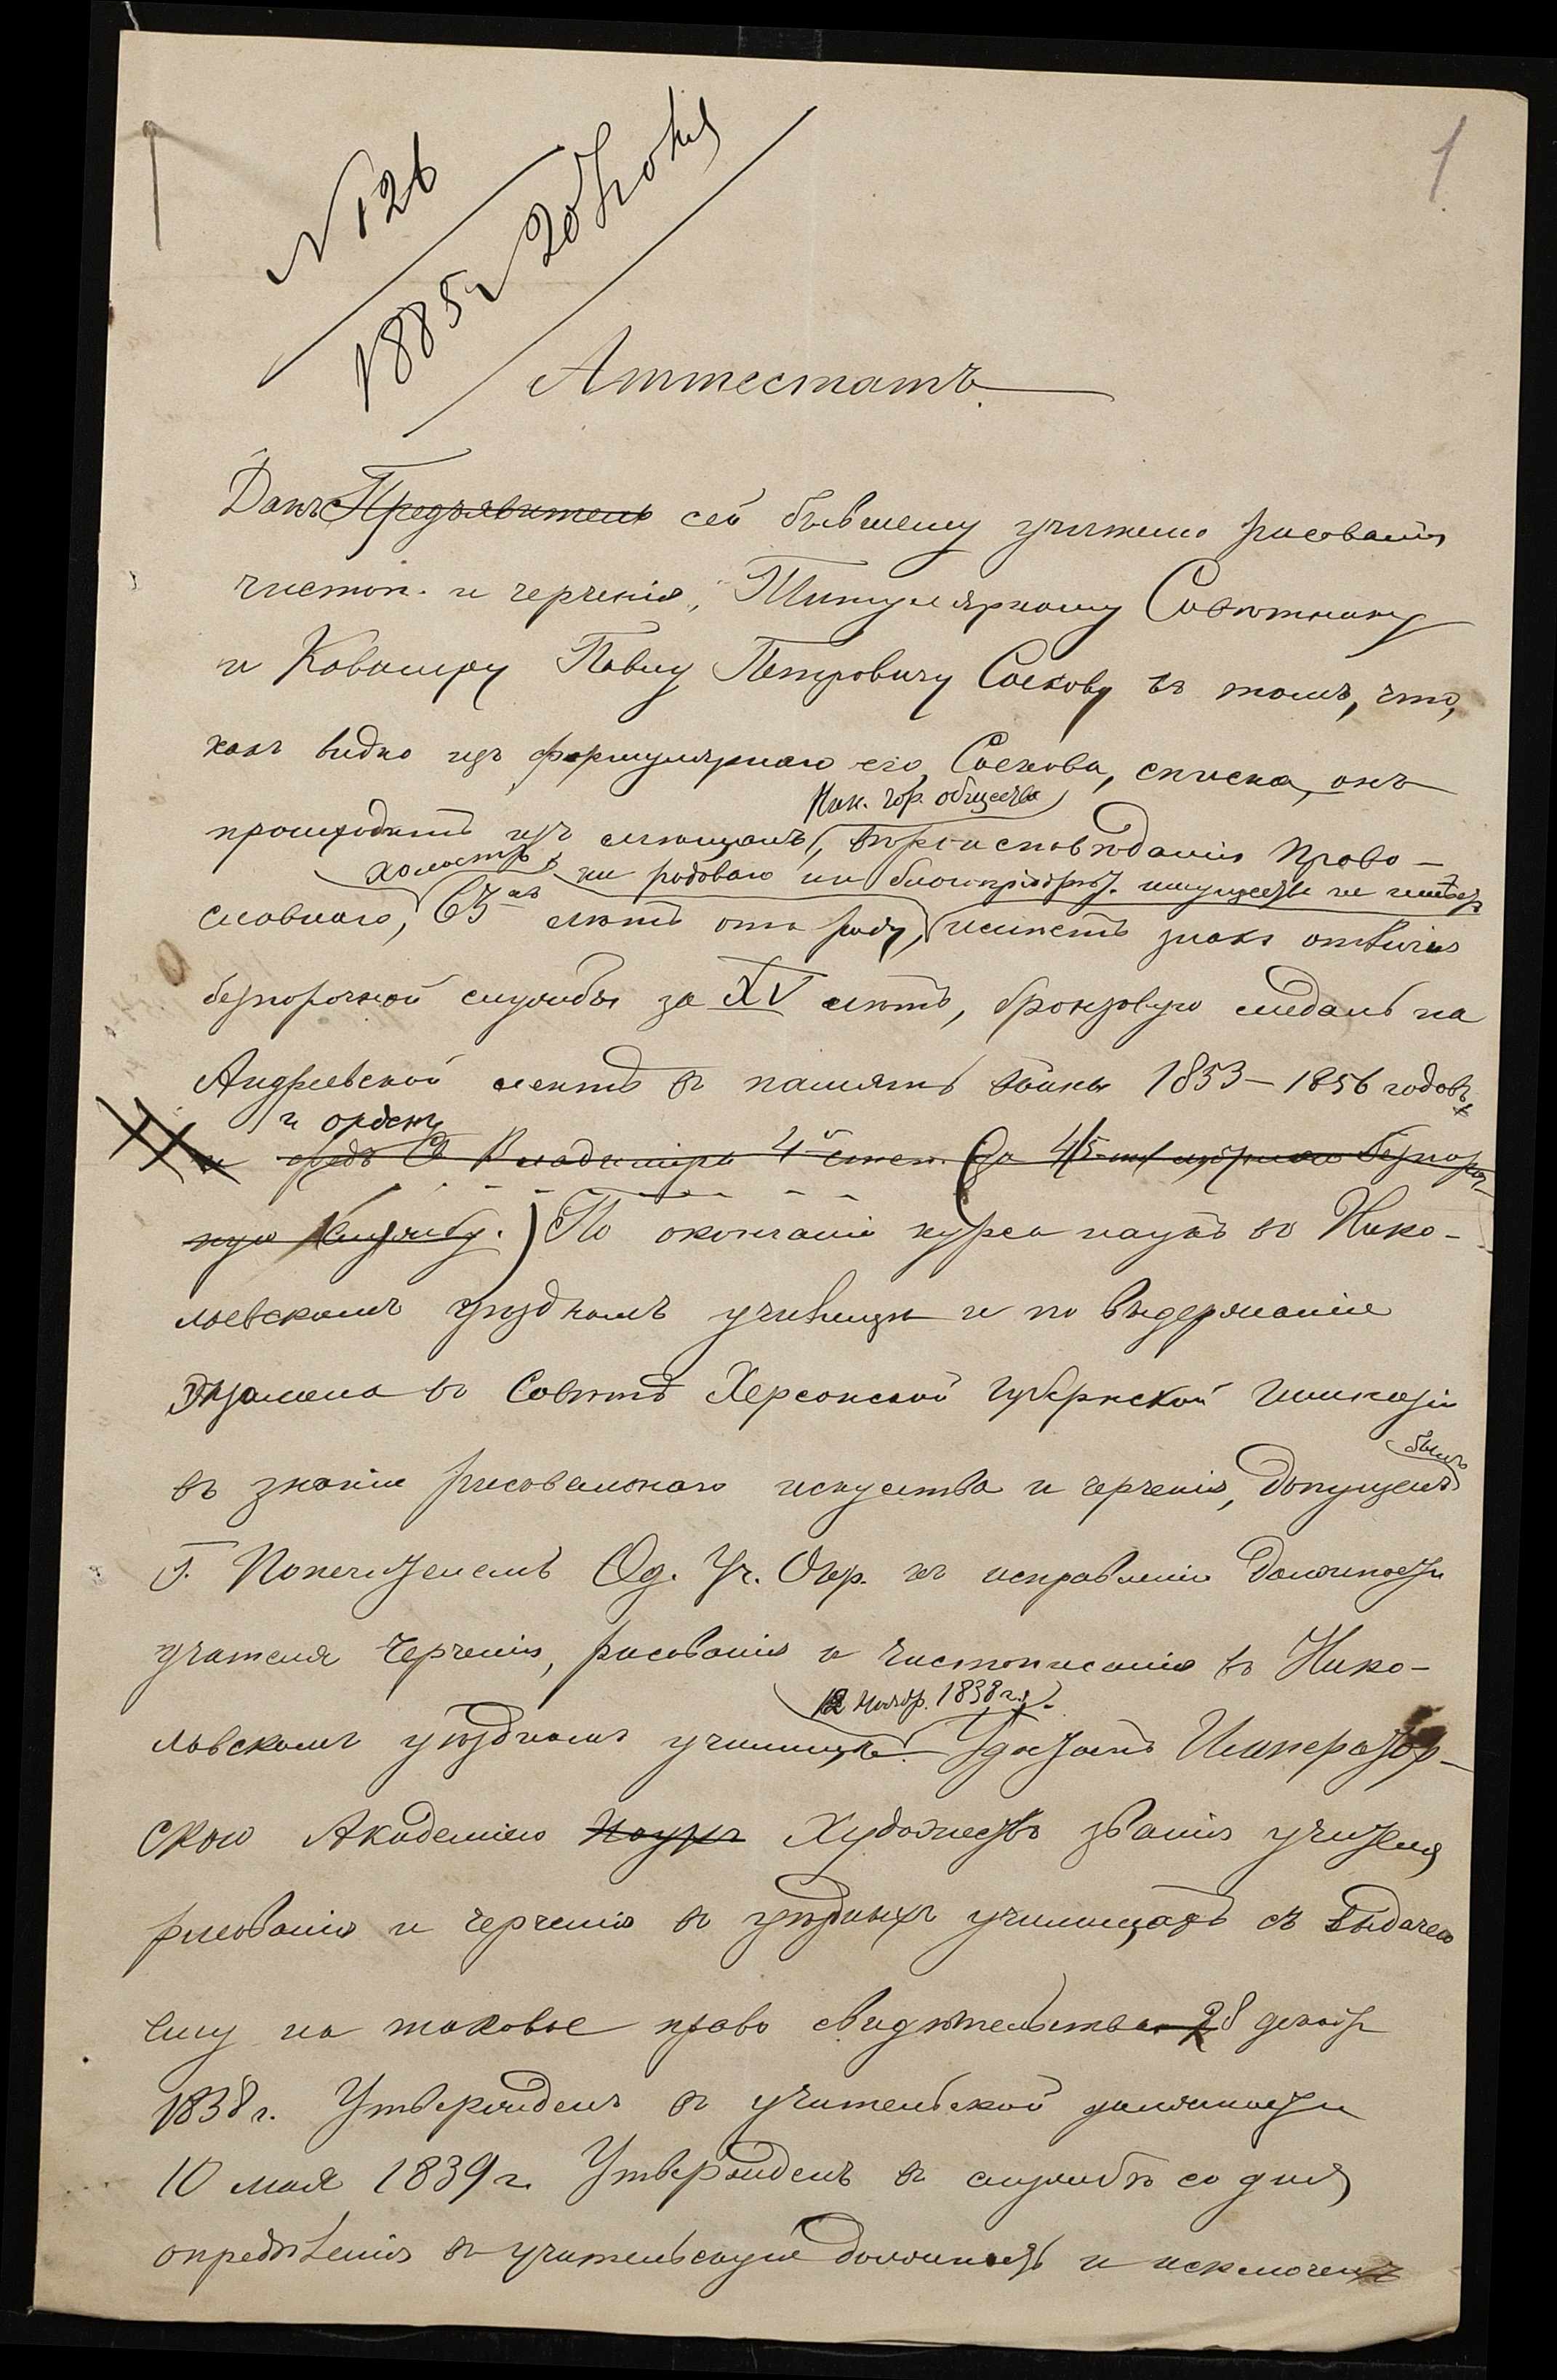 1
№ 126
1885 г. 20 Іюня
Аттестатъ.
Данъ Предъявитель сей бывшему учителю рисованія
чистоп. и черченія, Титулярному Совѣтнику
и Кавалеру Павлу Петровичу Соскову въ томъ, что,
какъ видно изъ формулярнаго его, Соскова, списка, онъ
Ник. гор. общества
происходитъ изъ мѣщанъ, вѣроисповѣданія Право-
холостъ, ни родоваго ни благопріобрѣт. имущества не имѣетъ
славнаго, 65 лѣтъ отъ роду, имѣетъ знакъ отличія
безпорочной службы за XV лѣтъ, бронзовую медаль на
Андреевской лентѣ въ память войны 1853–1856 годовъ
и орденъ
Св. Владиміра 4й степ. (за
службу.) По окончаніи курса наукъ въ Нико-
лаевскомъ уѣздномъ училищѣ и по выдержаніи
экзамена въ Совѣтѣ Херсонской губернской гимназіи
былъ
въ знаніи рисовальнаго искуства и черченія, допущенъ
Г. Попечителемъ Од. Уч. Окр. къ исправленію должности
учителя черченія, рисованія и чистописанія въ Нико-
12 ноябр. 1838 г.
лаевскомъ уѣздномъ училищѣ. Удостоенъ Император-
скою Академіею Наукъ Художествъ званія учителя
рисованія и черченія въ уѣздныхъ училищахъ съ выдачею
ему на таковое право свидѣтельства 28 декабр
1838 г. Утвержденъ въ учительской должности
10 мая 1839 г. Утвержденъ въ службѣ со дня
опредѣленія въ учительскую должность и исключенъ